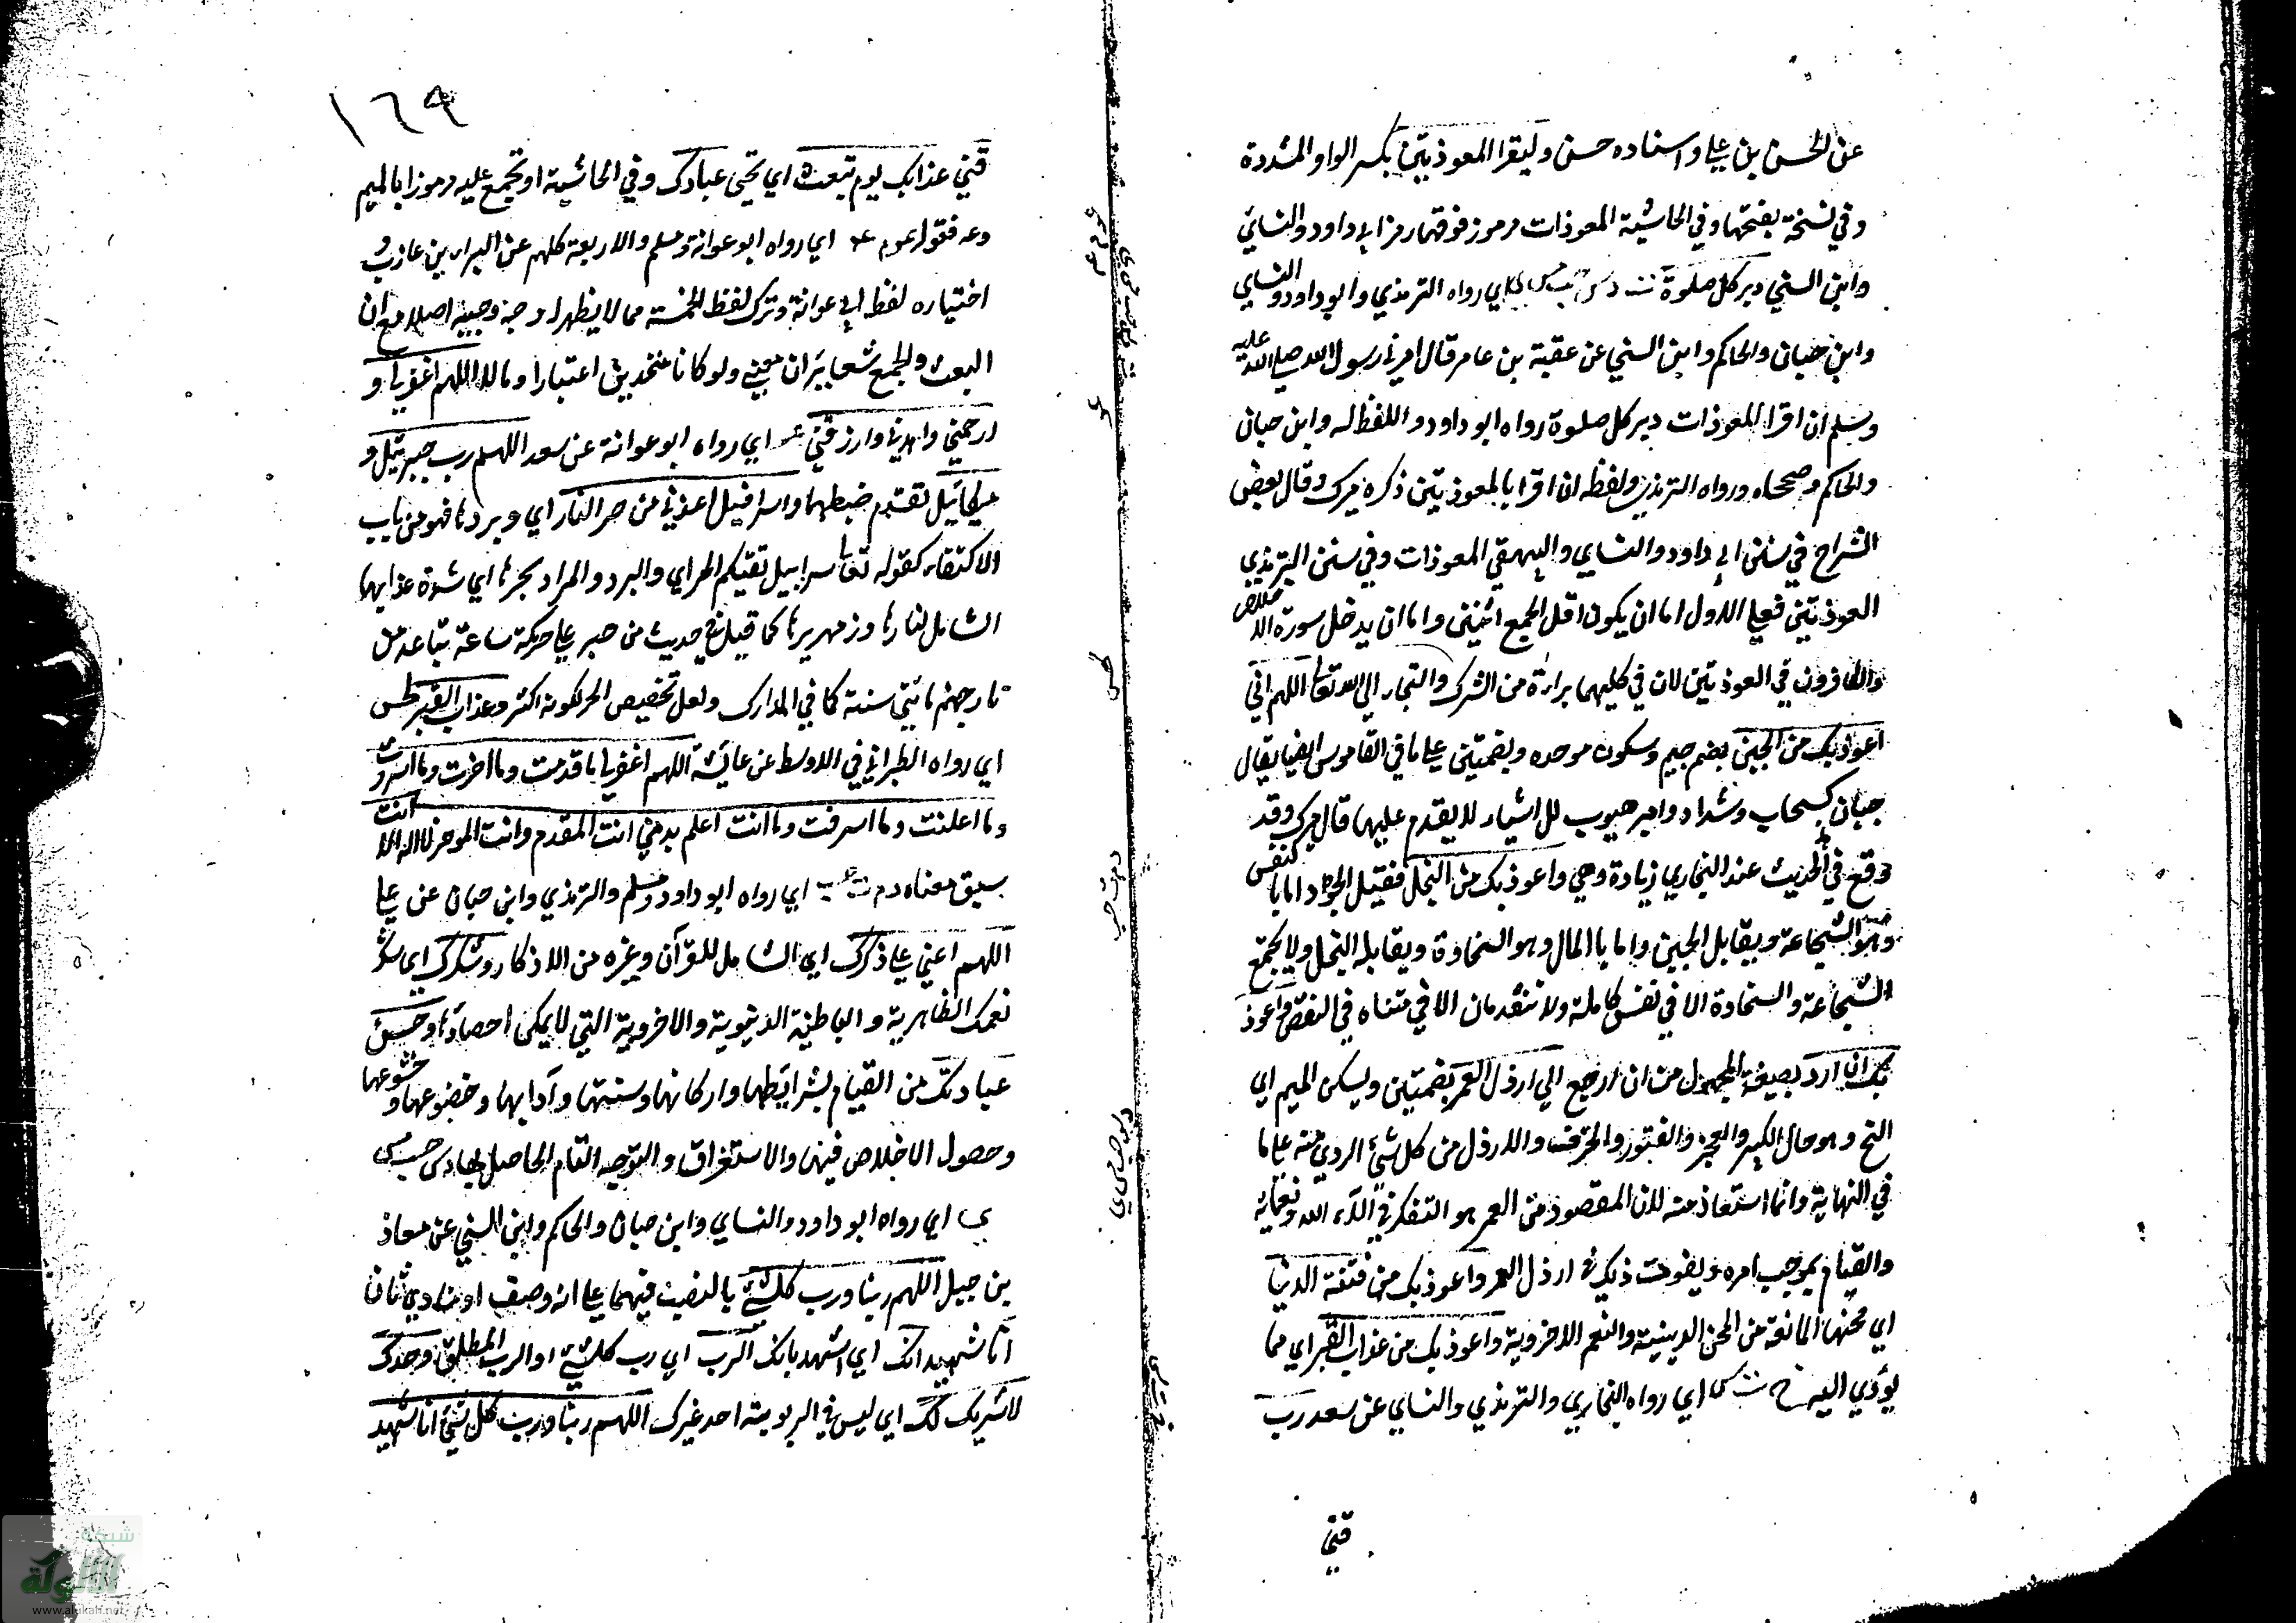 عن الحسن بن علي واسناده حسن وليقرا المعوذتين بكسر الواو المشددة
وفي نسخة بفتحها وفي الحاشية المعوذات مرموز فوقها رمز ابي داود والنسائي
وابن السني دبر كل صلوة ت د س حب مس ي اي رواه الترمذي وابو داود والنساي
وابن حبان والحاكم وابن السني عن عقبة بن عامر قال امرني رسول الله صلي الله عليه
وسلم ان اقرا المعوذات دبر كل صلوة رواه ابو داود واللفظ له وابن حبان
والحاكم وصححاه ورواه الترمذي ولفظه ان اقرا بالمعوذتين ذكره ميرك وقال بعض
الشراح في سنن ابي داود والنساي والبيهقي المعوذات وفي سنن الترمذي
المعوذتين فعلي الاول اما ان يكون اقل الجمع اثنين واما ان يدخل سورة الاخلاص
والكافرون في المعوذتين لان في كليهما براءة من الشرك والتجاء الي الله تعا اللهم اني
اعوذ بك من الجبن بضم جيم وسكون موحده وبضمتين علي ما في القاموس ايضا يقال
جبان كسحاب وشداد وامير هيوب للاشياء لا يقدم عليها قال ميرك وقد
وقع في الحديث عند البخاري زيادة وهي واعوذ بك من البخل فقيل الجود اما بالنفس
وهو الشجاعة ويقابل الجبن واما بالمال وهو السخاوة ويقابله البخل ولا يجتمع
الشجاعة والسخاوة الا في نفس كاملة ولا تنعدمان الا في متناه في النقص واعوذ
بك ان ارد بصيغة المجهول من ان ارجع الي ارذل العمر بضمتين ويسكن الميم اي
الخ وهو حال الكبر والعجز والفتور والخرف والارذل من كل شيئ الردي منه علي ما
في النهاية وانما استعاذ منه لان المقصود من العمر هو التفكر في آلاء الله ونعمائه
والقيام بموجب امره ويفوت ذلك في ارذل العمر واعوذ بك من فتنة الدنيا
اي محنها المانعة من المحن الدينية والنعم الاخروية واعوذ بك من عذاب القبر اي مما
يؤدي اليه خ ت س اي رواه البخاري والترمذي والنساي عن سعد رب
قني
١٦٩
قني عذابك يوم تبعث اي تحيى عبادك وفي الحاشية او تجمع عليه مرموزا بالميم
وعه فقوله عو م عه اي رواه ابو عوانة ومسلم والاربعة كلهم عن البراء بن عازب و
اختياره لفظ ابي عوانة وترك لفظ الخمسة مما لا يظهر له وجه وجيه اصلا مع ان
البعث والجمع متغايران معني ولو كانا متحدين اعتبارا ومالا اللهم اغفر لي و
ارحمني واهدني وارزقني عو اي رواه ابو عوانة عن سعد اللهم رب جبرئيل و
ميكائيل تقدم ضبطهما واسرافيل اعذني من حر النار اي وبردها فهو من باب
الاكتفاء كقوله تعا سرابيل تقيكم الحر اي والبرد والمراد بحرها اي شدة عذابها
الشامل لنارها وزمهريرها كما قيل في حديث من صبر علي حر مكة ساعة تباعد من
نار جهنم مائتي سنة كما في المدارك ولعل تخصيص الحر لكونه اكثر وعذاب القبر طس
اي رواه الطبراني في الاوسط عن عائشة اللهم اغفر لي ما قدمت وما اخرت وما اسررت
وما اعلنت وما اسرفت وما انت اعلم به مني انت المقدم وانت المؤخر لا اله الا انت
سبق معناه د م ت حب اي رواه ابو داود ومسلم والترمذي وابن حبان عن علي
اللهم اعني علي ذكرك اي الشامل للقرآن وغيره من الاذكار وشكرك اي شكر
نعمك الظاهرية والباطنية الدنيوية والاخروية التي لا يمكن احصاؤها وحسن
عبادتك من القيام بشرايطها واركانها وسنتها وآدابها وخضوعها وخشوعها
وحصول الاخلاص فيها والاستغراق والتوجه التام الحاصل بها د س حب مس
ي اي رواه ابو داود والنساي وابن حبان والحاكم وابن السني عن معاذ
بن جبل اللهم ربنا ورب كل شئ بالنصب فيهما علي انه وصف او منادي ثان
انا شهيد انك اي اشهد بانك الرب اي رب كل شئ او الرب المطلق وحدك
لا شريك لك اي ليس في الربوبية احد غيرك اللهم ربنا ورب كل شيئ انا شهيد
شبكة
الألوكة
www.alukah.net